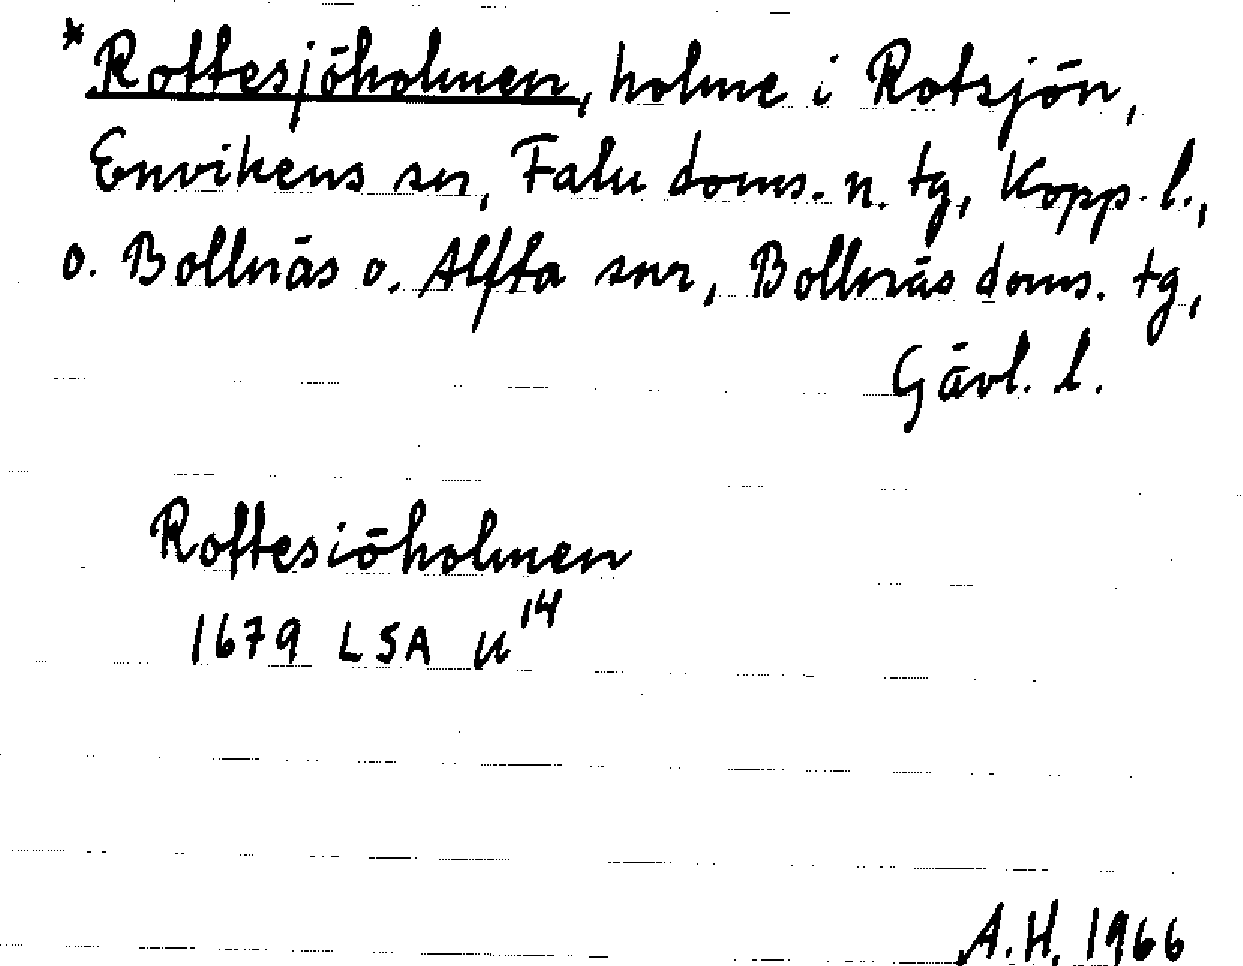 *Rottesjöholmen, holme i Rotsjön,
Envikens sn, Falu doms. n. tg, Kopp. l.,
o. Bollnäs o. Alfta snr, Bollnäs doms. tg,
Gävl. l.
Roftesiöholmen
1679 LSA U¹⁴
A.H. 1966